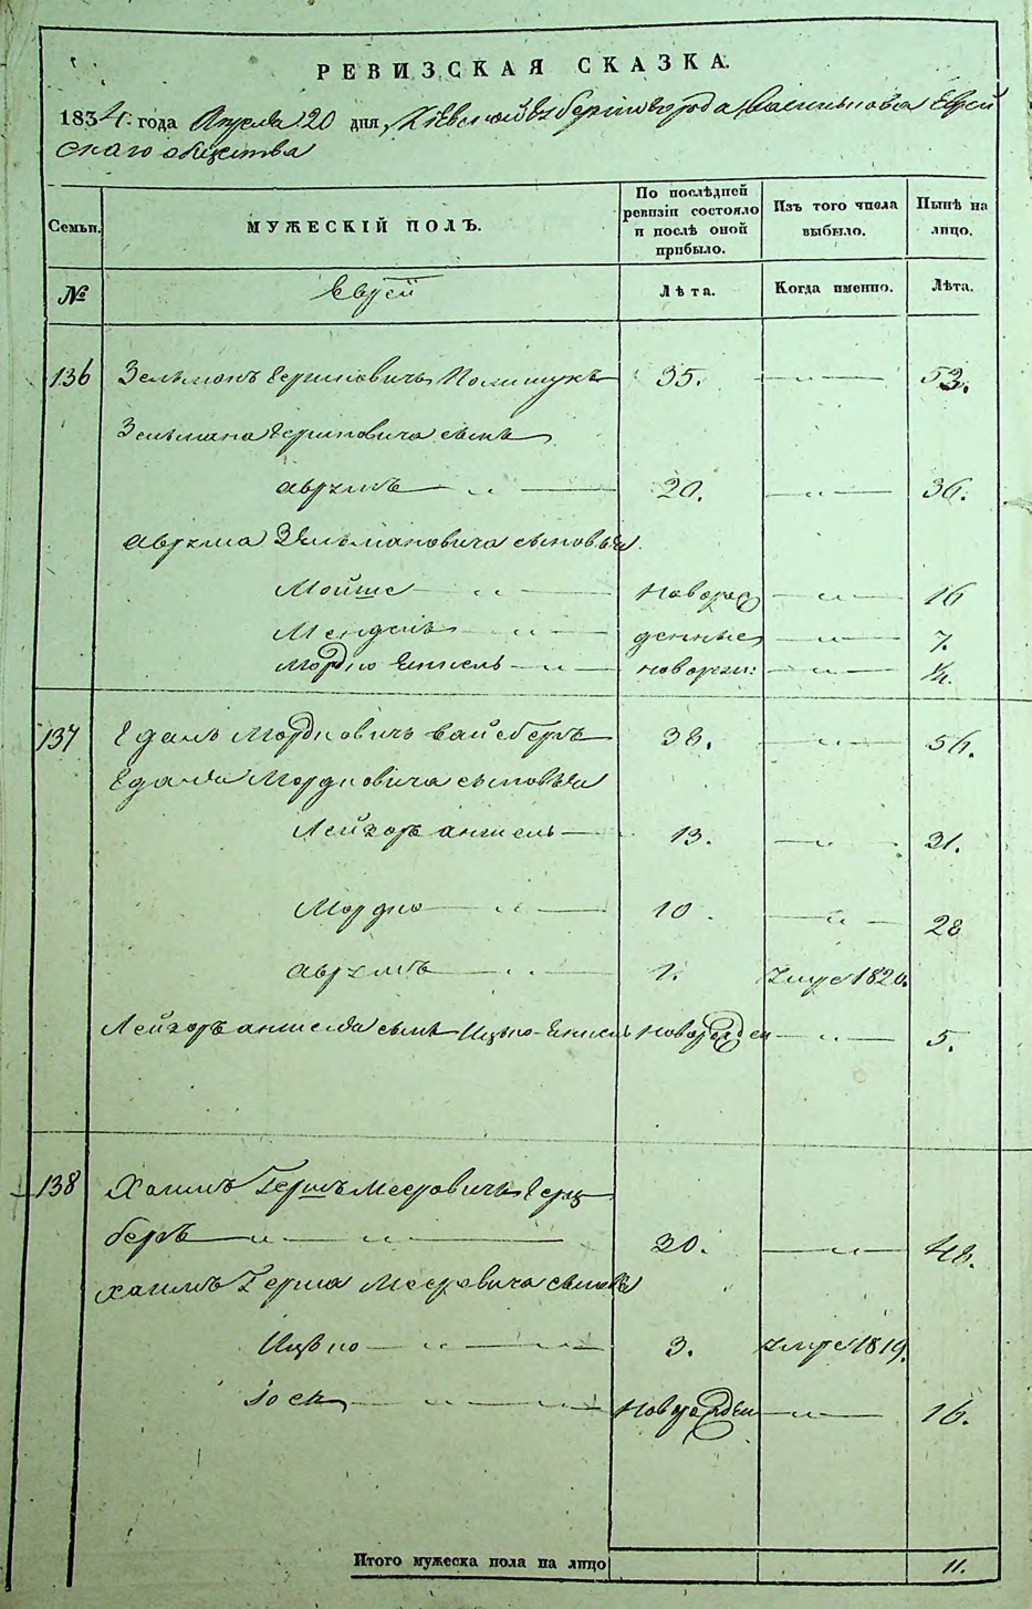 РЕВИЗСКАЯ СКАЗКА.
1834. года Апреля 20 дня, Кiевской губернiи города Василькова Еврей
скаго общества
Семьи.
МУЖЕСКІЙ ПОЛЪ.
По послѣдней ревизіи состояло и послѣ оной прибыло.
Изъ того числа выбыло.
Нынѣ на лицо.
№ Еврей Лѣта. Когда именно. Лѣта.
136 Зельманъ Гершковичъ Полищукъ 35. — „ — 53.
Зельмана Гершковича сынъ
Аврумъ — „ — 20. — „ — 36.
Аврума Зельмановича сыновья
Мойше — „ — новорож — „ — 16
Мендель — „ — денные — „ — 7.
Мордко Янкель — „ — новорож: — „ — 1/2.
137 Едаль Мордковичъ Вайсбергъ 38. — „ — 56.
Едаля Мордковича сыновья
Лейзоръ Аншель — 13. — „ — 31.
Мордко — „ — 10. — „ — 28
Аврумъ — „ — 1. умре 1820.
Лейзоръ Аншеля сынъ Ицко-Янкель новорожден — „ — 5.
138 Хаимъ Гершъ Мееровичъ Герц
бергъ — „ — „ — 30. — „ — 48.
Хаимъ Герша Мееровича сыновья
Ицко — „ — „ — 3. умре 1819.
Іось — „ — „ — новорожден — „ — 16.
Итого мужеска пола на лицо 11.